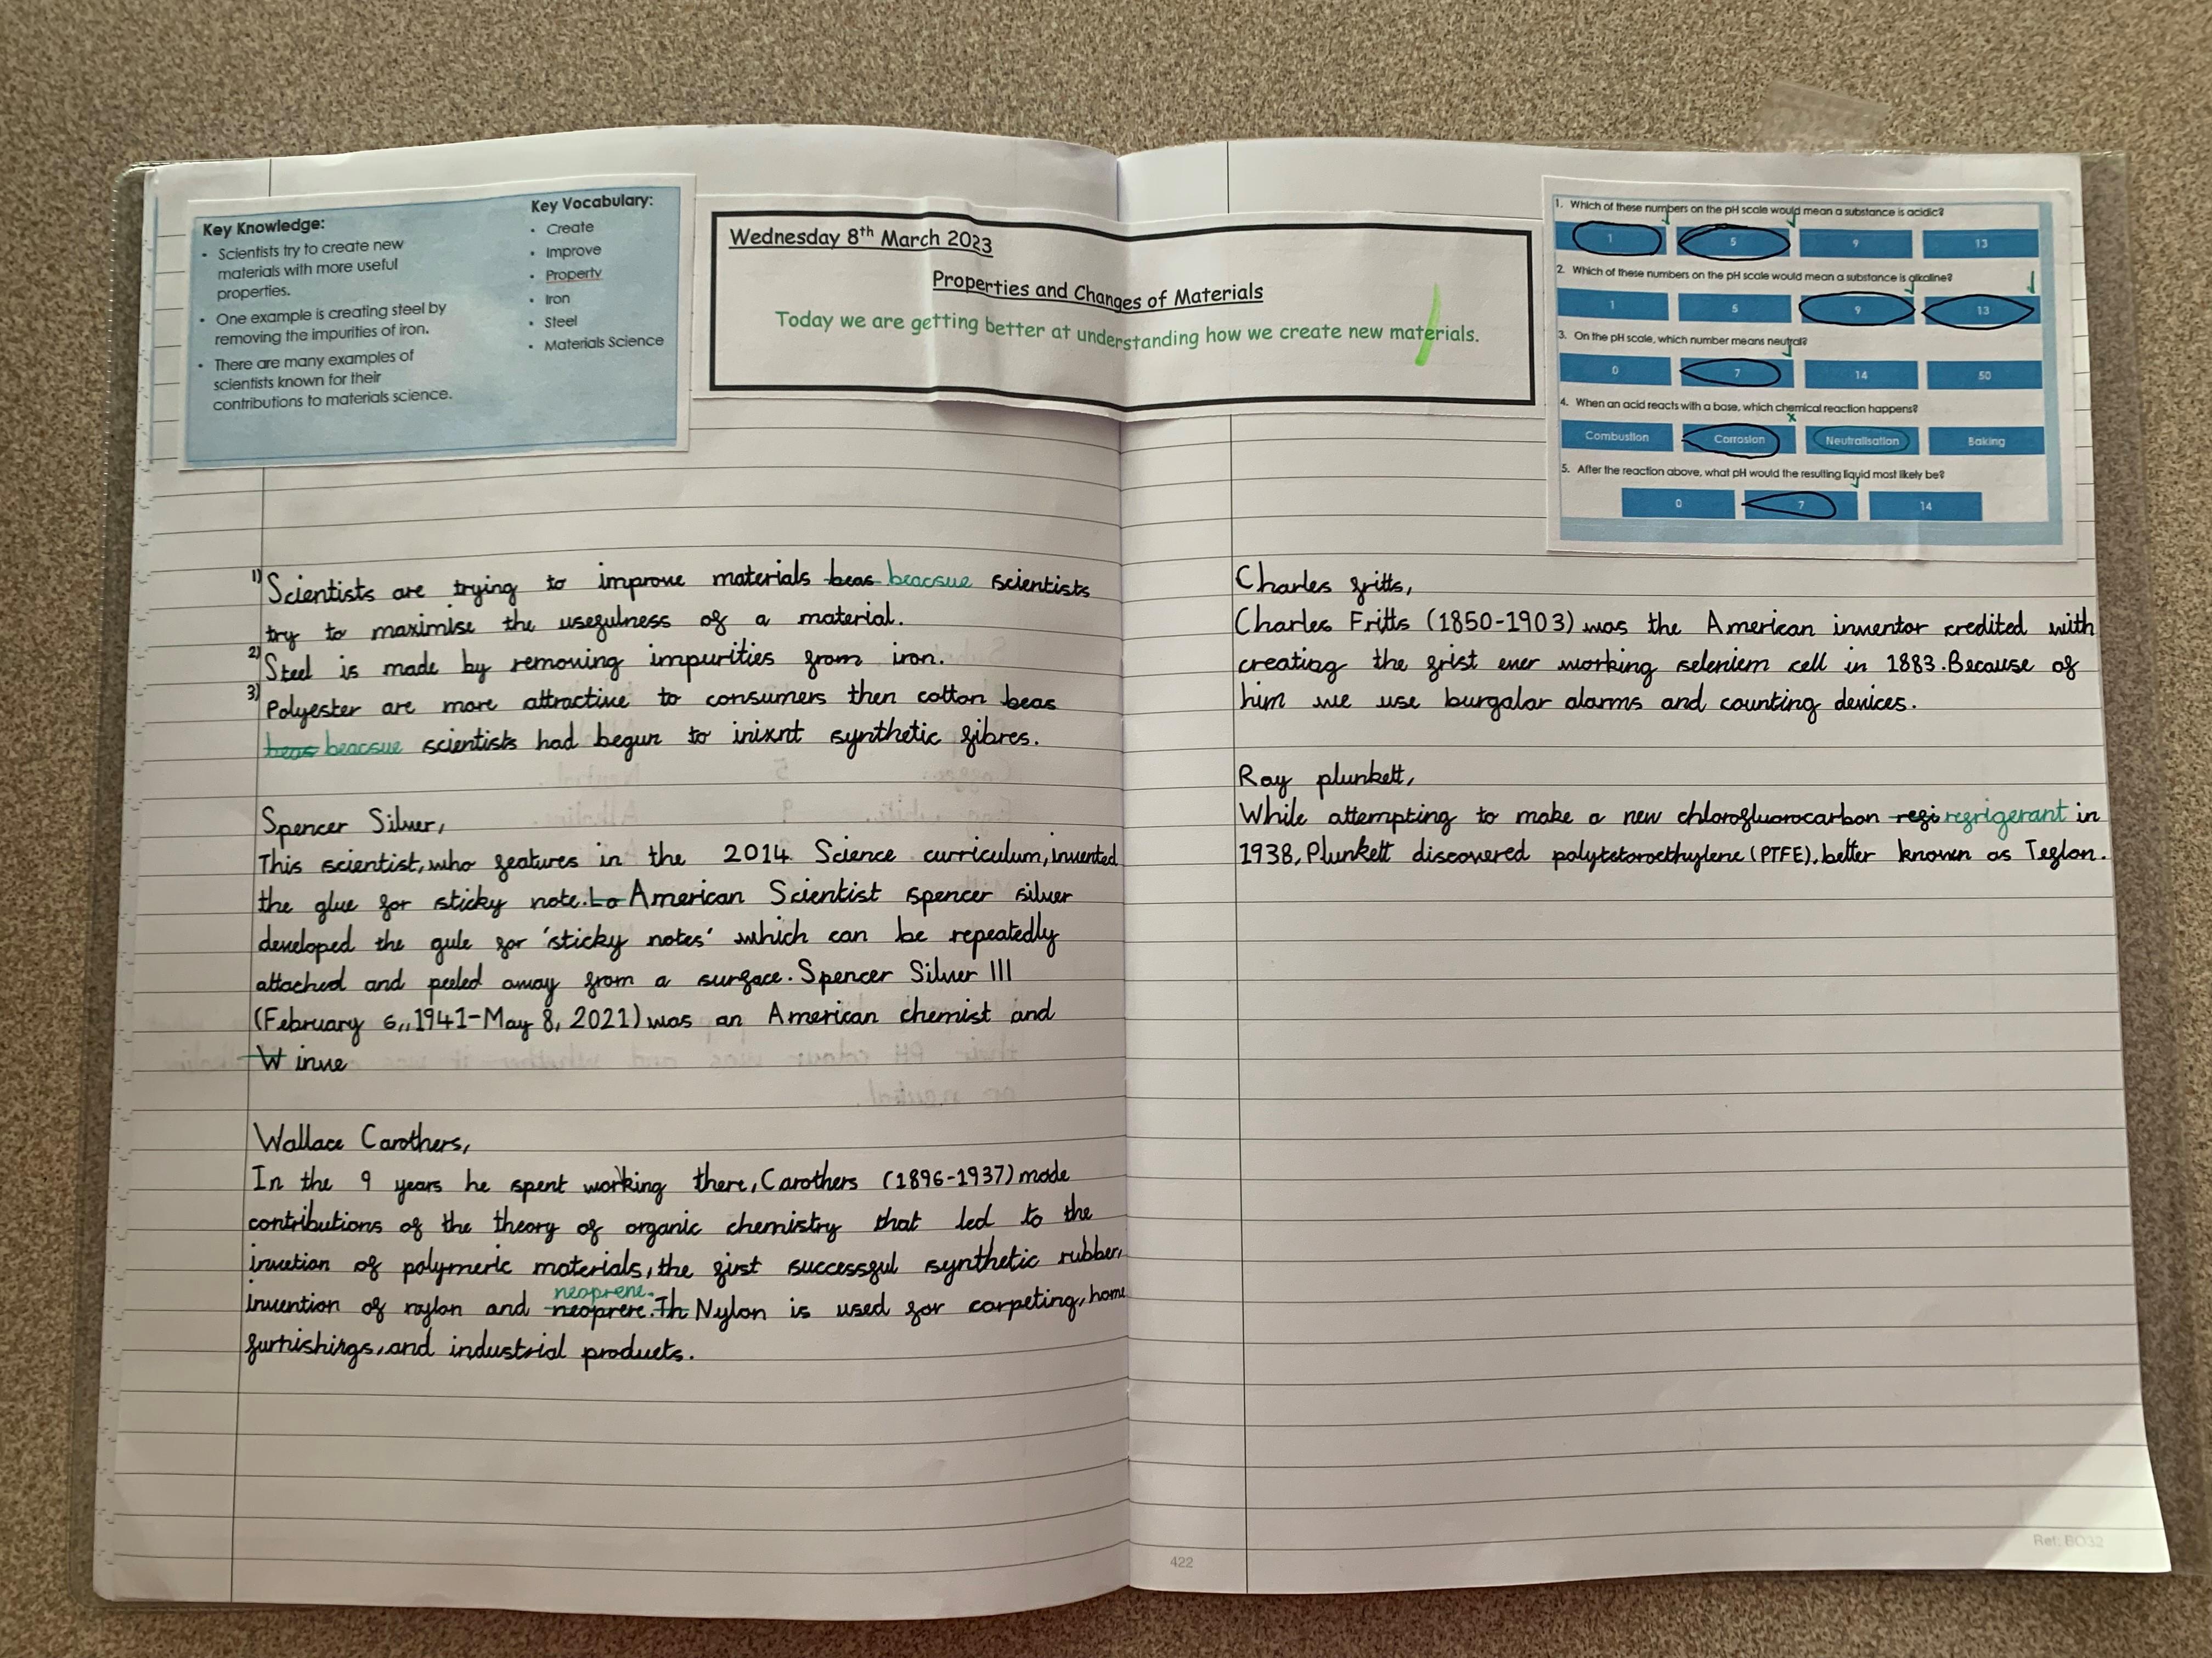 Key Knowledge:
• Scientists try to create new
materials with more useful
properties.
• One example is creating steel by
removing the impurities of iron.
• There are many examples of
scientists known for their
contributions to materials science.
Key Vocabulary:
• Create
• Improve
• Property
• Iron
• Steel
• Materials Science
Wednesday 8th March 2023
Properties and Changes of Materials
Today we are getting better at understanding how we create new materials.
1. Which of these numbers on the pH scale would mean a substance is acidic?
1 5 9 13
2. Which of these numbers on the pH scale would mean a substance is alkaline?
1 5 9 13
3. On the pH scale, which number means neutral?
0 7 14 50
4. When an acid reacts with a base, which chemical reaction happens?
Combustion Corrosion Neutralisation Baking
5. After the reaction above, what pH would the resulting liquid most likely be?
0 7 14
1) Scientists are trying to improve materials beas beacsue scientists
try to maximise the usefulness of a material.
2) Steel is made by removing impurities from iron.
3) Polyester are more attractive to consumers then cotton beas
beas beacsue scientists had begun to inixnt synthetic fibres.
Spencer Silver,
This scientist, who features in the 2014 Science curriculum, invented
the glue for sticky note. Lo American Scientist spencer silver
developed the gule for 'sticky notes' which can be repeatedly
attached and peeled away from a surface. Spencer Silver III
(February 6,, 1941-May 8, 2021) was an American chemist and
W inve
Wallace Carothers,
In the 9 years he spent working there, Carothers (1896-1937) made
contributions of the theory of organic chemistry that led to the
invetion of polymeric materials, the first successful synthetic rubber,
invention of nylon and neoprere. neoprene. Th Nylon is used for carpeting, home
furnishings, and industrial products.
Charles fritts,
Charles Fritts (1850-1903) was the American inventor credited with
creating the frist ever working seleniem cell in 1883. Because of
him we use burgalar alarms and counting devices.
Roy plunkett,
While attempting to make a new chlorofluorocarbon refi refrigerant in
1938, Plunkett discovered polytetoroethylene (PTFE), better known as Teflon.
422
Ref: BO32